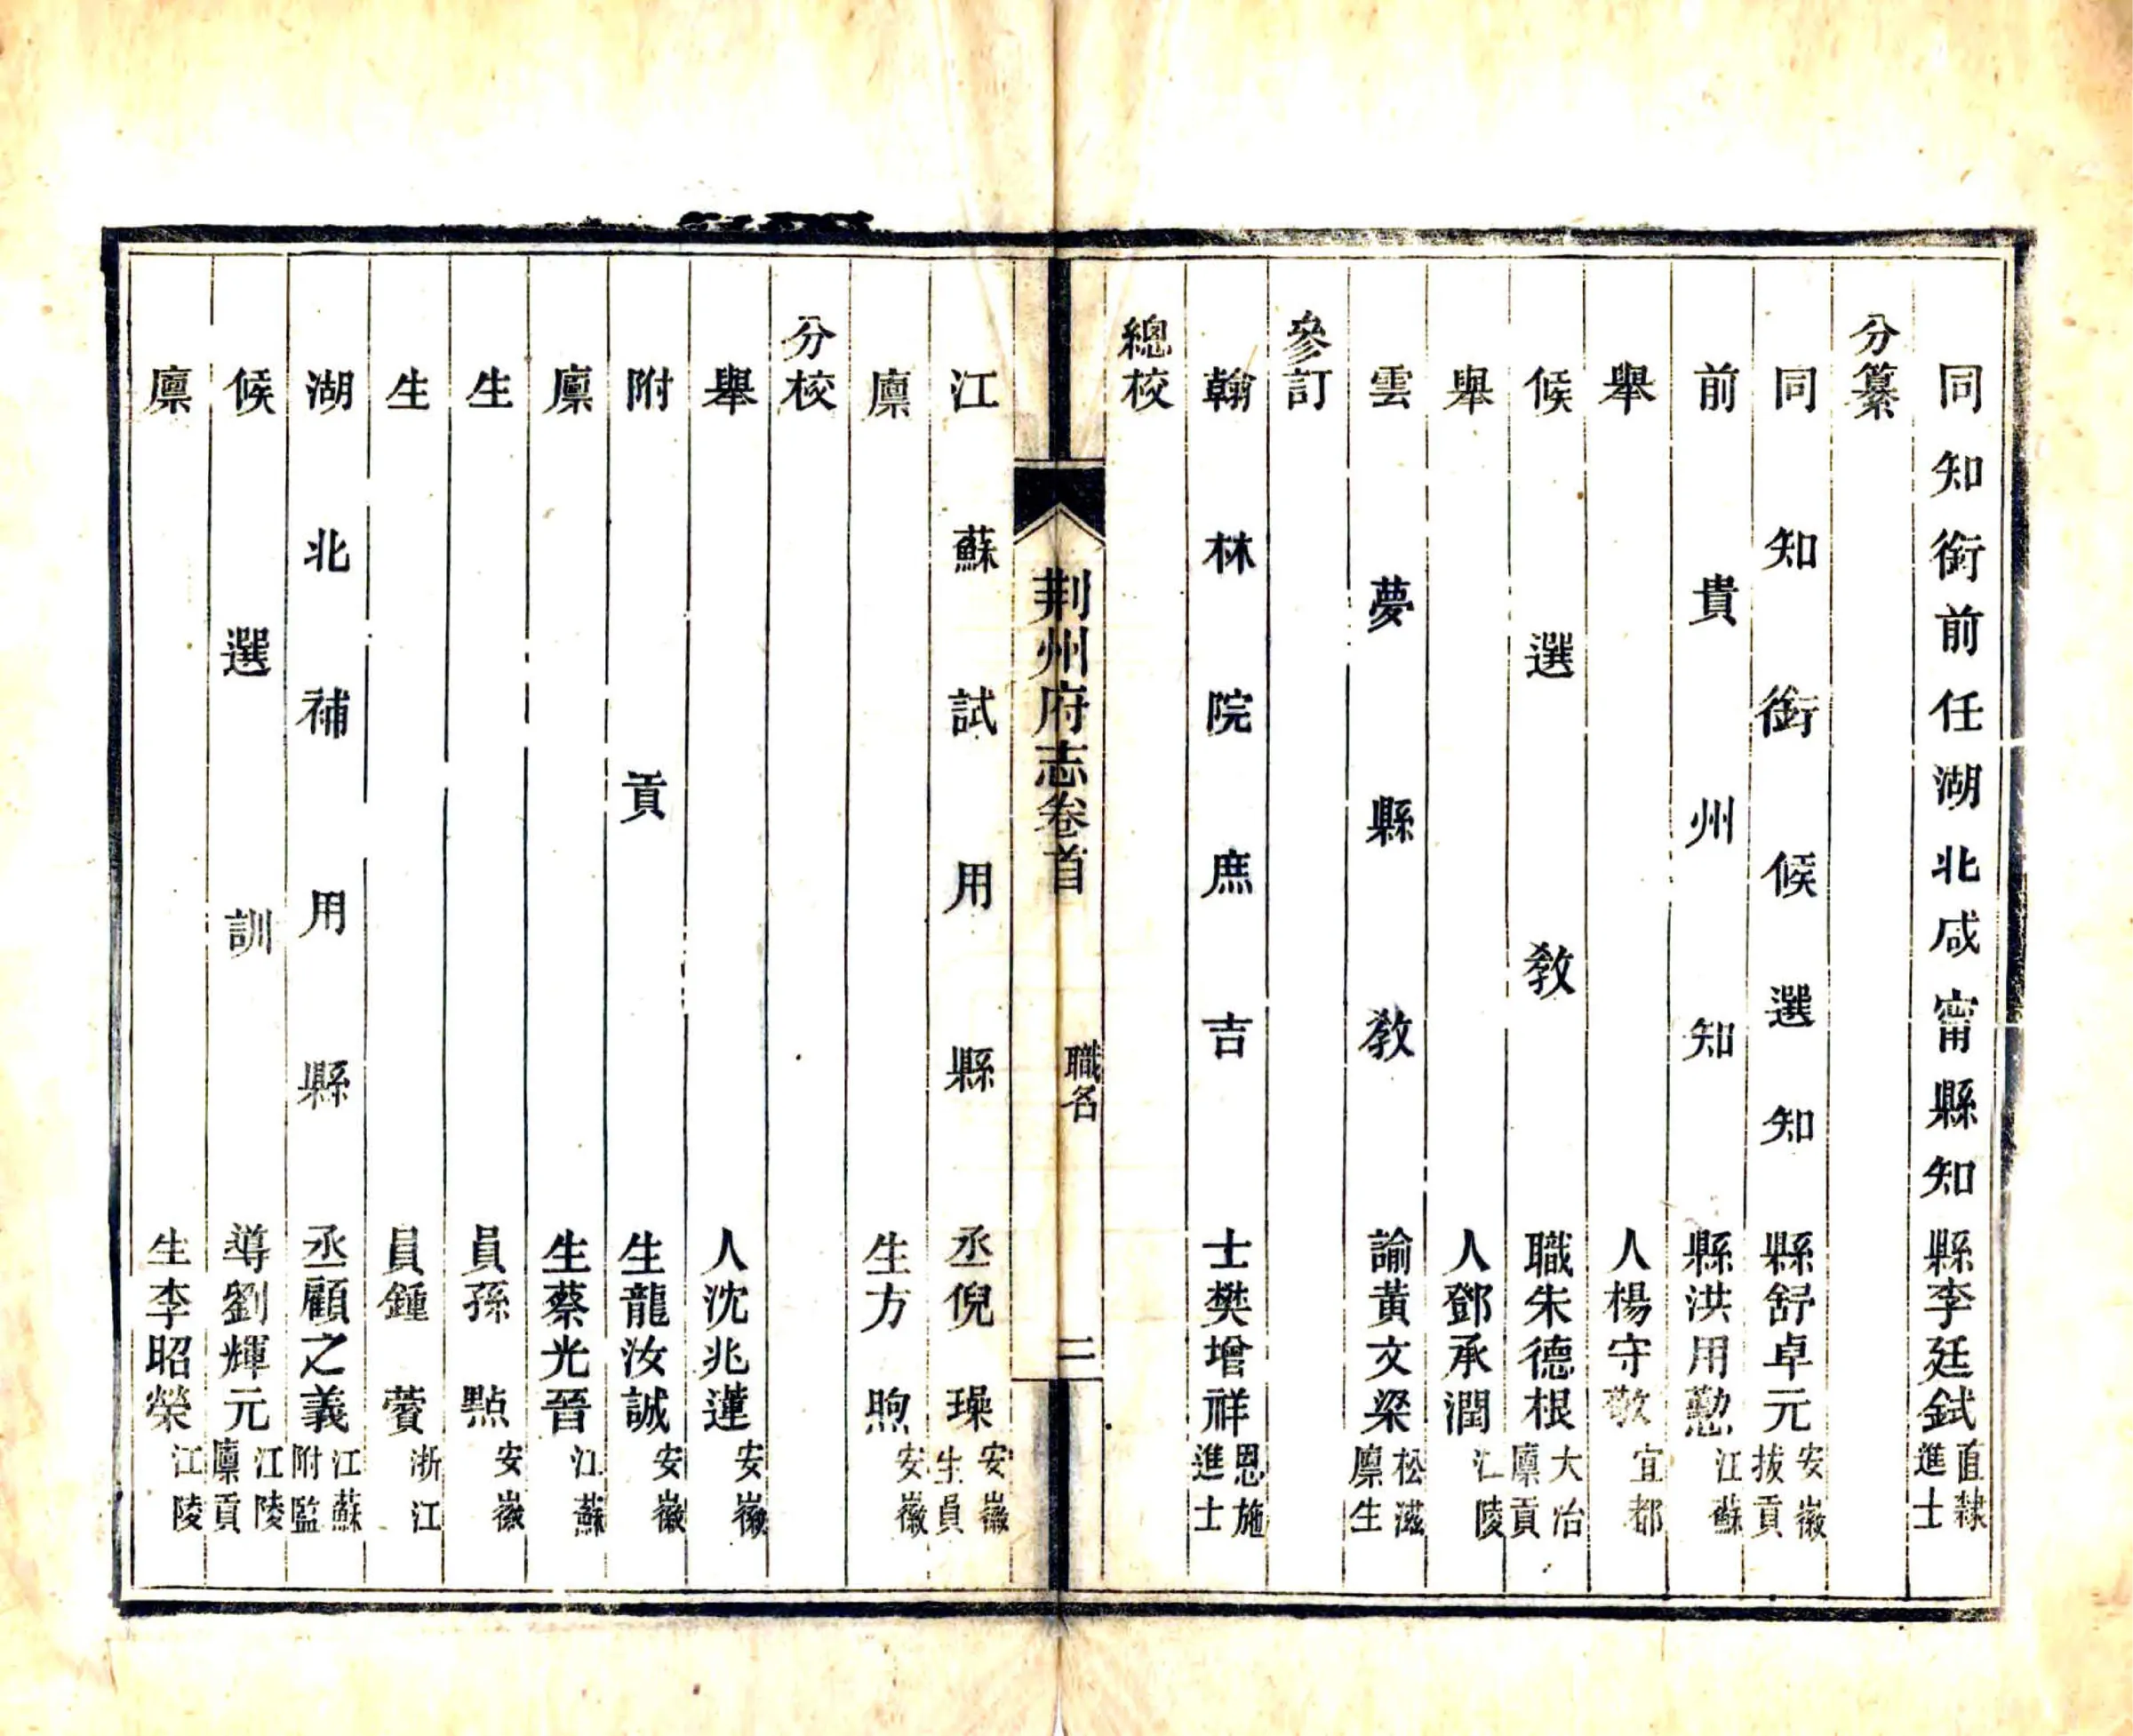 同知銜前任湖北咸甯縣知縣李廷鉽直隸進士
分纂
同知銜候選知縣舒卓元安徽拔貢
前貴州知縣洪用懃江蘇
舉人楊守敬宜都
候選教職朱德根大冶廩貢
舉人鄧承潤江陵
雲夢縣教諭黃文梁松滋廩生
參訂
翰林院庶吉士樊增祥恩施進士
總校
荆州府志卷首
職名
二
江蘇試用縣丞倪璪安徽生員
廩生方煦安徽
分校
舉人沈兆蓮安徽
附貢生龍汝誠安徽
廩生蔡光晉江蘇
生員孫點安徽
生員鍾䕊浙江
湖北補用縣丞顧之義江蘇附監
候選訓導劉輝元江陵廩貢
廩生李昭榮江陵